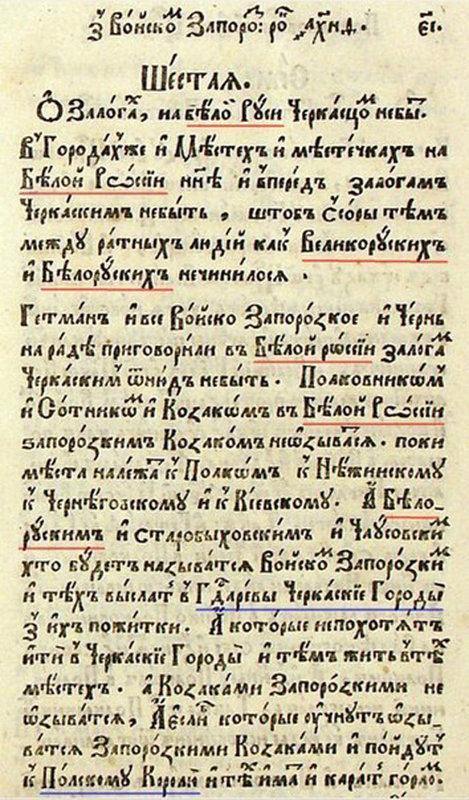 з̾ Вóйскоⷨ Запорóⷤ: рóкꙋ ҂ахн҃д. є҃і.
Шестаѧ.
Ѽ Залогаⷯ, на бѣ́лоⷩ Рꙋси Черкасцоⷨ небыⷮ.
В̾ Городаⷯже и Мѣ́стех̾ и мѣстечках̾ на
Бѣ́лой Рѡсі́и нн҃ѣ и впередъ залогамъ
Черкасскимъ небыть, штобъ ссоры тѣмъ
междꙋ ратных̾ людїй какъ Великорꙋских̾
и Бѣлорꙋских̾ нечинилосѧ.
Гетма́нъ и все Во́йско Запоро́зкое и Чернь
на рáдѣ приговорили въ Бѣ́лой рѡсі́и залогаⷨ
Черкаскимъ ѿнюдъ небыть. Полковникѡмъ
и Сотникѡⷨ и Козакѡмъ въ Бѣ́лой Рѡсі́и
запорозкимъ Козакомъ неѡзыватсѧ. поки
мѣста належаⷮ к̾ Полкѡмъ к̾ Нѣжинскомꙋ
к̾ Чернѣговскомꙋ и к̾ Кіевскомꙋ. А Бѣло-
рꙋскимъ и старобыховскимъ и Чаꙋсовскиⷨ
хто бꙋдетъ называтсѧ Войскоⷨ Запорозкиⷨ
и тѣхъ выслатⷤ в̾ Гдⷭ҇арєвы Черкаскіе Городы
з̾ ихъ пожитки. А которые непохотѧтъ
ити в̾ Черкаскіе Городы и тѣмъ жить втѣⷯ
мѣстехъ. а Козаками Запорозкими не
ѡзыватсѧ, А єсли которые ꙋчнꙋтъ ѡзы-
ватсѧ Запорозкими Козаками и пойдꙋтъ
к̾ Полскомꙋ Королю и тѣⷯ имат и каратⷤ горлоⷨ.